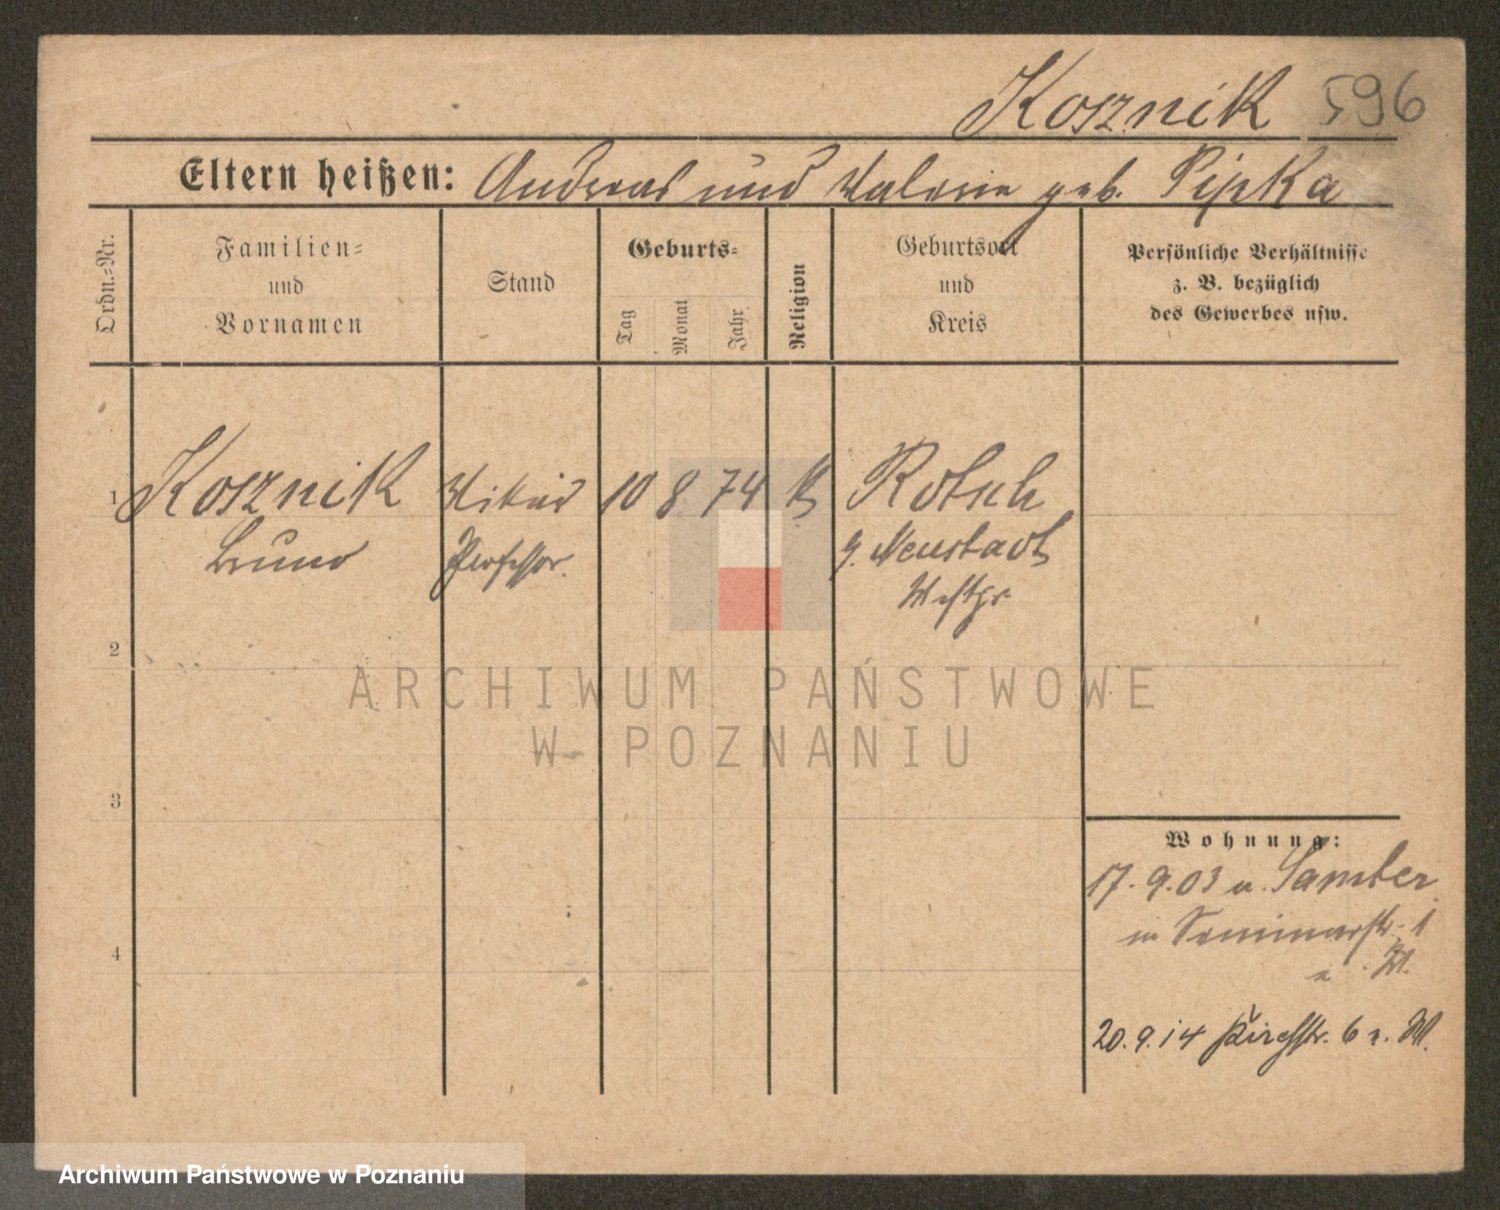 Kosznik 596
Eltern heißen: Andreas und Valerie geb. Pipka
Ordn.-Nr.
Familien-
und
Vornamen
Stand
Geburts-
Tag
Monat
Jahr
Religion
Geburtsort
und
Kreis
Persönliche Verhältnisse
z. B. bezüglich
des Gewerbes usw.
1 Kosznik 10 8 74 k
Bruno Professor.
Neustadt
Westpr
2
3
4
Wohnung:
17. 9. 03 u. Samter
in Seminarstr. 1
20. 9. 14 Kirchstr. 6
ARCHIWUM PAŃSTWOWE
W POZNANIU
Archiwum Państwowe w Poznaniu